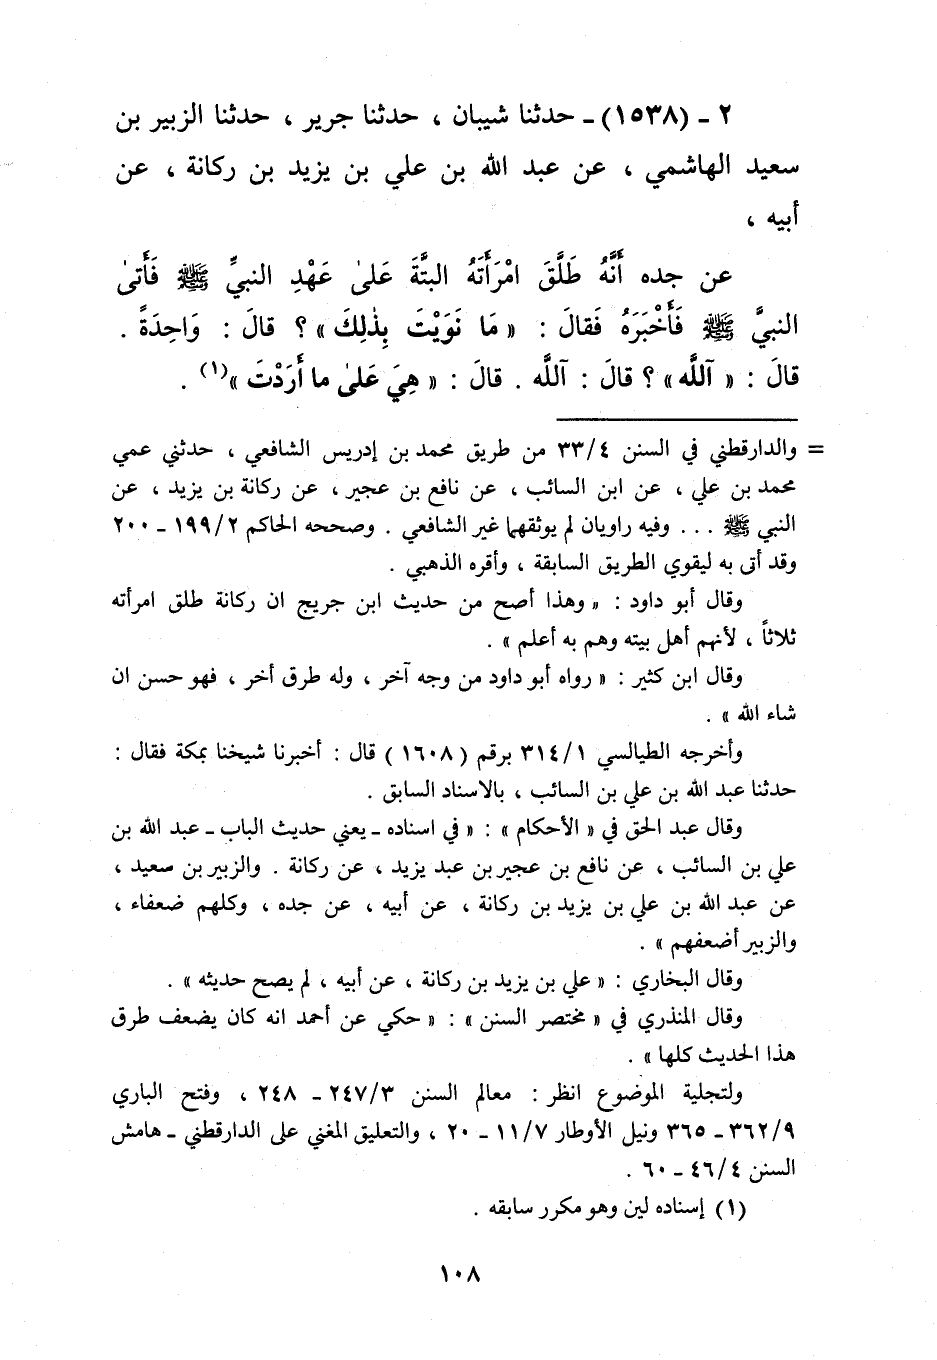 ٢ ـ (١٥٣٨) ـ حدثنا شيبان ، حدثنا جرير ، حدثنا الزبير بن
سعيد الهاشمي ، عن عبد الله بن علي بن يزيد بن ركانة ، عن
أبيه ،
عن جده أَنَّهُ طَلَّقَ امْرَأَتَهُ البتَّةَ عَلىٰ عَهْدِ النبيِّ ﷺ فَأَتىٰ
النبيَّ ﷺ فَأَخْبَرَهُ فَقالَ : « مَا نَوَيْتَ بِذٰلِكَ » ؟ قالَ : وَاحِدَةً .
قالَ : « آللَّه » ؟ قالَ : آللَّه . قالَ : « هِيَ عَلىٰ ما أَرَدْتَ »(١) .
= والدارقطني في السنن ٣٣/٤ من طريق محمد بن إدريس الشافعي ، حدثني عمي
محمد بن علي ، عن ابن السائب ، عن نافع بن عجير ، عن ركانة بن يزيد ، عن
النبي ﷺ ... وفيه راويان لم يوثقهما غير الشافعي . وصححه الحاكم ١٩٩/٢ ـ ٢٠٠
وقد أتى به ليقوي الطريق السابقة ، وأقره الذهبي .
وقال أبو داود : « وهذا أصح من حديث ابن جريج ان ركانة طلق امرأته
ثلاثاً ، لأنهم أهل بيته وهم به أعلم » .
وقال ابن كثير : « رواه أبو داود من وجه آخر ، وله طرق أخر ، فهو حسن ان
شاء الله » .
وأخرجه الطيالسي ٣١٤/١ برقم (١٦٠٨) قال : أخبرنا شيخنا بمكة فقال :
حدثنا عبد الله بن علي بن السائب ، بالاسناد السابق .
وقال عبد الحق في « الأحكام » : « في اسناده ـ يعني حديث الباب ـ عبد الله بن
علي بن السائب ، عن نافع بن عجير بن عبد يزيد ، عن ركانة . والزبير بن سعيد ،
عن عبد الله بن علي بن يزيد بن ركانة ، عن أبيه ، عن جده ، وكلهم ضعفاء ،
والزبير أضعفهم » .
وقال البخاري : « علي بن يزيد بن ركانة ، عن أبيه ، لم يصح حديثه » .
وقال المنذري في « مختصر السنن » : « حكي عن أحمد انه كان يضعف طرق
هذا الحديث كلها » .
ولتجلية الموضوع انظر : معالم السنن ٢٤٧/٣ ـ ٢٤٨ ، وفتح الباري
٣٦٢/٩ ـ ٣٦٥ ونيل الأوطار ١١/٧ ـ ٢٠ ، والتعليق المغني على الدارقطني ـ هامش
السنن ٤٦/٤ ـ ٦٠ .
(١) إسناده لين وهو مكرر سابقه .
١٠٨